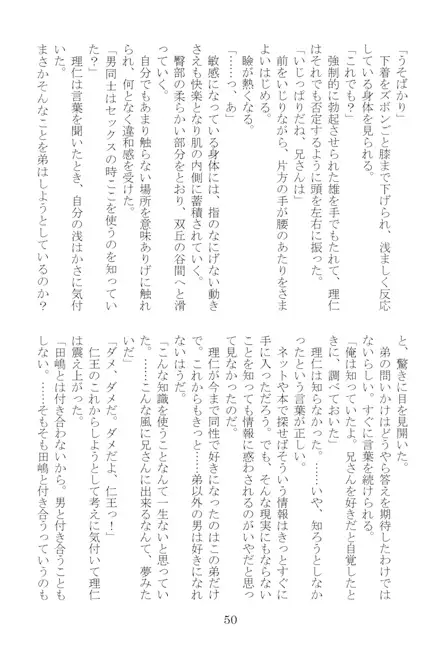 「うそばかり」
　下着をズボンごと膝まで下げられ、浅ましく反応
している身体を見られる。
「これでも？」
　強制的に勃起させられた雄を手でもたれて、理仁
はそれでも否定するように頭を左右に振った。
「いじっぱりだね、兄さんは」
　前をいじりながら、片方の手が腰のあたりをさま
よいはじめる。
　瞼が熱くなる。
「……っ、あ」
　敏感になっている身体には、指のなにげない動き
さえも快楽となり肌の内側に蓄積されていく。
　臀部の柔らかい部分をとおり、双丘の谷間へと滑
っていく。
　自分でもあまり触らない場所を意味ありげに触れ
られ、何となく違和感を受けた。
「男同士はセックスの時ここを使うのを知ってい
た？」
　理仁は言葉を聞いたとき、自分の浅はかさに気付
いた。
　まさかそんなことを弟はしようとしているのか？
と、驚きに目を見開いた。
　弟の問いかけはどうやら答えを期待したわけでは
ないらしい。すぐに言葉を続けられる。
「俺は知っていたよ。兄さんを好きだと自覚したと
きに、調べておいた」
　理仁は知らなかった。……いや、知ろうとしなか
ったという言葉が正しい。
　ネットや本で探せばそういう情報はきっとすぐに
手に入っただろう。でも、そんな現実にもならない
ことを知っても情報に惑わされるのがいやだと思っ
て見なかったのだ。
　理仁が今まで同性で好きになったのはこの弟だけ
で。これからもきっと……弟以外の男は好きになれ
ないはずだ。
「こんな知識を使うことなんて一生ないと思ってい
た。……こんな風に兄さんに出来るなんて、夢みた
いだ」
「ダメ、ダメだ。ダメだよ、仁王っ！」
　仁王のこれからしようとして考えに気付いて理仁
は震え上がった。
「田嶋とは付き合わないから。男と付き合うことも
しない。……そもそも田嶋と付き合うっていうのも
50